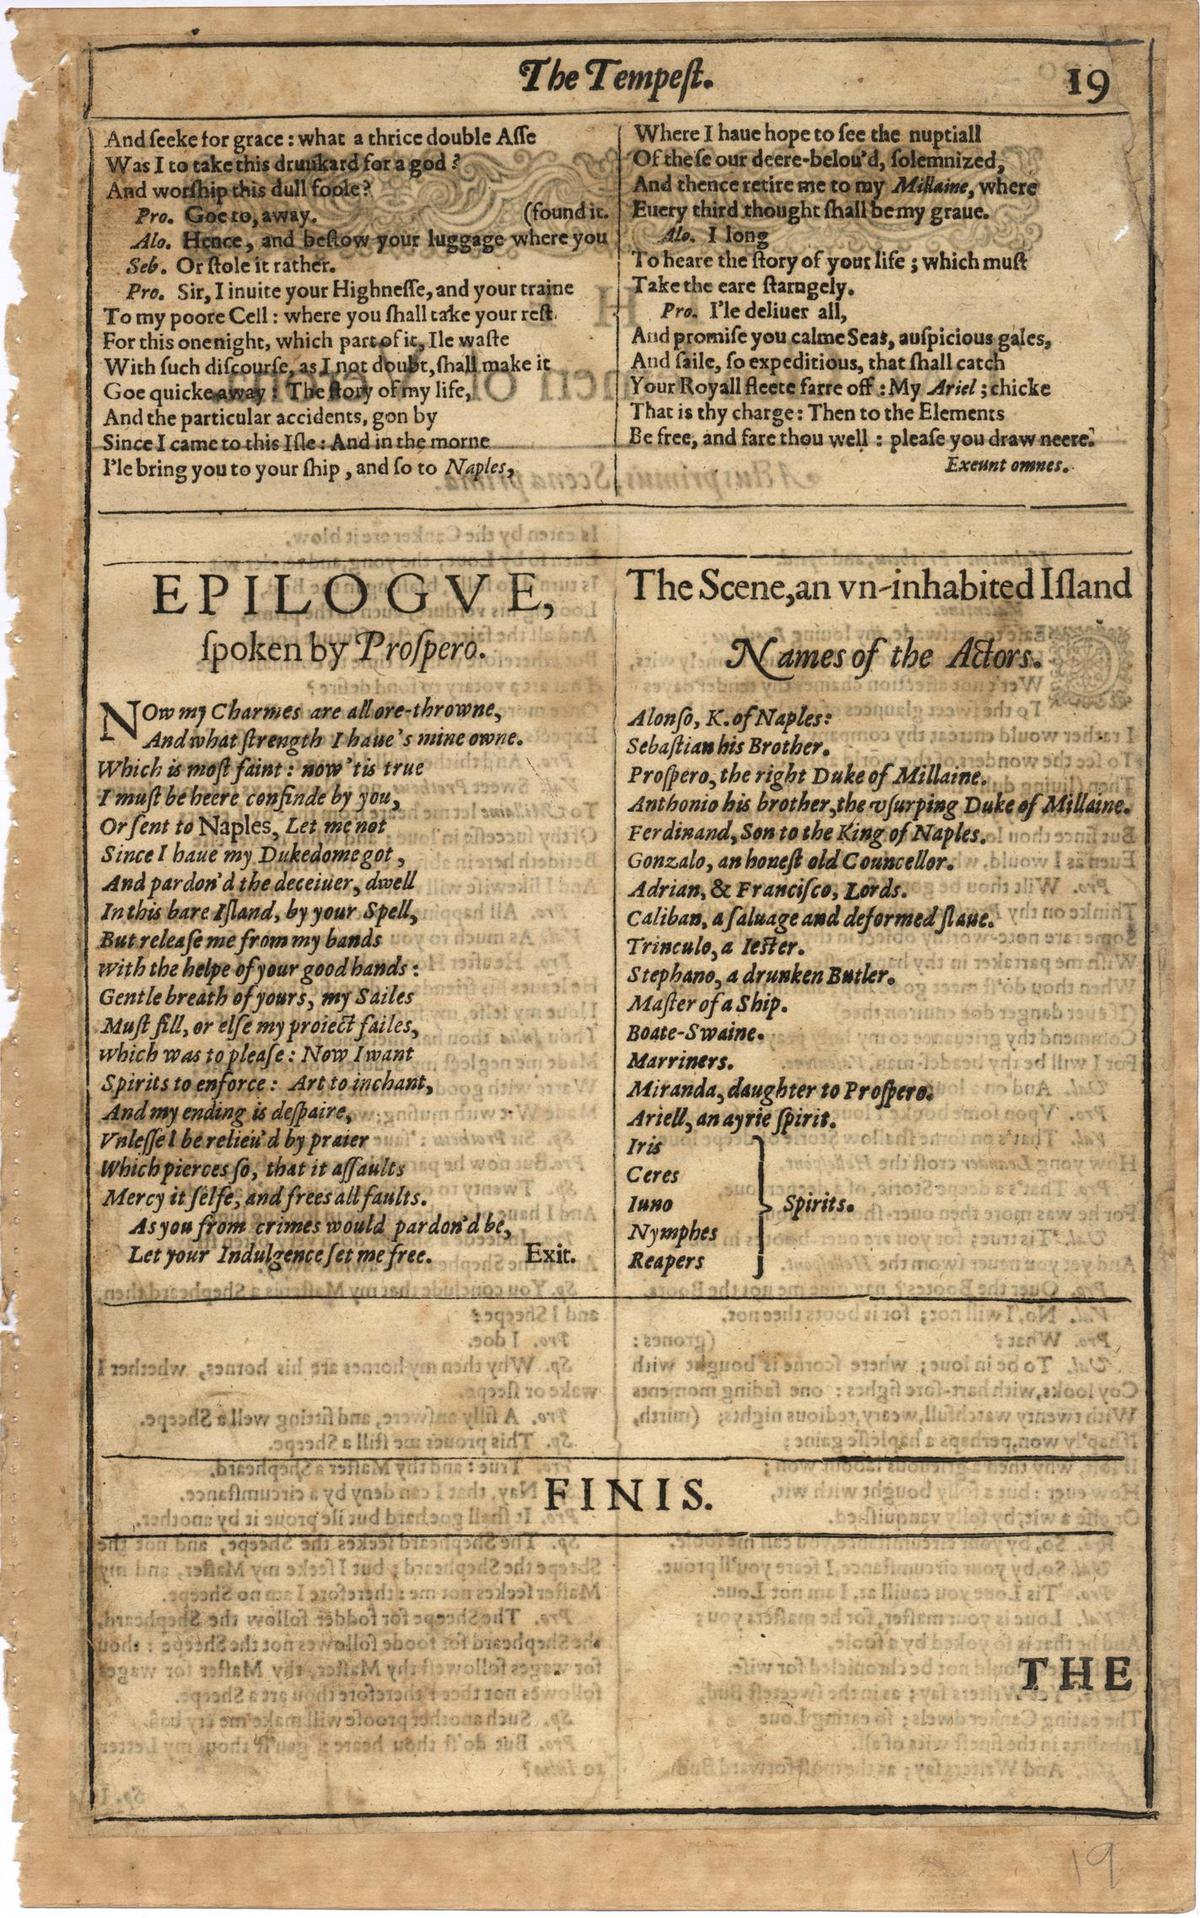 The Tempeſt.
19
And ſeeke for grace: what a thrice double Aſſe
Was I to take this drunkard for a god?
And worſhip this dull foole?
Pro. Goe to, away. (found it.
Alo. Hence, and beſtow your luggage where you
Seb. Or ſtole it rather.
Pro. Sir, I inuite your Highneſſe, and your traine
To my poore Cell: where you ſhall take your reſt
For this one night, which part of it, Ile waſte
With ſuch diſcourſe, as I not doubt, ſhall make it
Goe quicke away: The ſtory of my life,
And the particular accidents, gon by
Since I came to this Iſle: And in the morne
I'le bring you to your ſhip, and ſo to Naples,
Where I haue hope to ſee the nuptiall
Of theſe our deere-belou'd, ſolemnized,
And thence retire me to my Millaine, where
Euery third thought ſhall be my graue.
Alo. I long
To heare the ſtory of your life; which muſt
Take the eare ſtarngely.
Pro. I'le deliuer all,
And promiſe you calme Seas, auſpicious gales,
And ſaile, ſo expeditious, that ſhall catch
Your Royall fleete farre off: My Ariel; chicke
That is thy charge: Then to the Elements
Be free, and fare thou well: pleaſe you draw neere.
Exeunt omnes.
EPILOGVE,
ſpoken by Proſpero.
NOw my Charmes are all ore-throwne,
And what ſtrength I haue's mine owne.
Which is moſt faint: now 'tis true
I muſt be heere confinde by you,
Or ſent to Naples, Let me not
Since I haue my Dukedome got,
And pardon'd the deceiuer, dwell
In this bare Iſland, by your Spell,
But releaſe me from my bands
With the helpe of your good hands:
Gentle breath of yours, my Sailes
Muſt fill, or elſe my proiect failes,
Which was to pleaſe: Now I want
Spirits to enforce: Art to inchant,
And my ending is deſpaire,
Vnleſſe I be relieu'd by praier
Which pierces ſo, that it aſſaults
Mercy it ſelfe, and frees all faults.
As you from crimes would pardon'd be,
Let your Indulgence ſet me free. Exit.
The Scene, an vn-inhabited Iſland
Names of the Actors.
Alonſo, K. of Naples:
Sebaſtian his Brother.
Proſpero, the right Duke of Millaine.
Anthonio his brother, the vſurping Duke of Millaine.
Ferdinand, Son to the King of Naples.
Gonzalo, an honeſt old Councellor.
Adrian, & Franciſco, Lords.
Caliban, a ſaluage and deformed ſlaue.
Trinculo, a Ieſter.
Stephano, a drunken Butler.
Maſter of a Ship.
Boate-Swaine.
Marriners.
Miranda, daughter to Proſpero.
Ariell, an ayrie ſpirit.
Iris
Ceres
Iuno
Nymphes
Reapers
Spirits.
FINIS.
THE
19